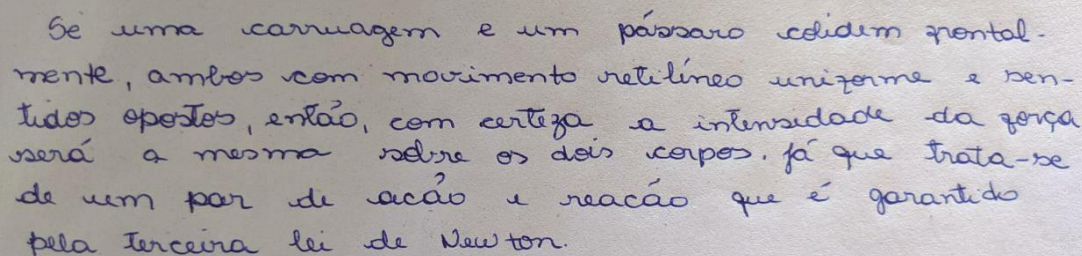 Se uma carruagem e um pássaro colidem frontal-
mente, ambos com movimento retilíneo uniforme e sen-
tidos opostos, então, com certeza a intensidade da força
será a mesma sobre os dois corpos. Já que trata-se
de um par de acão e reacão que é garantido
pela terceira lei de Newton.